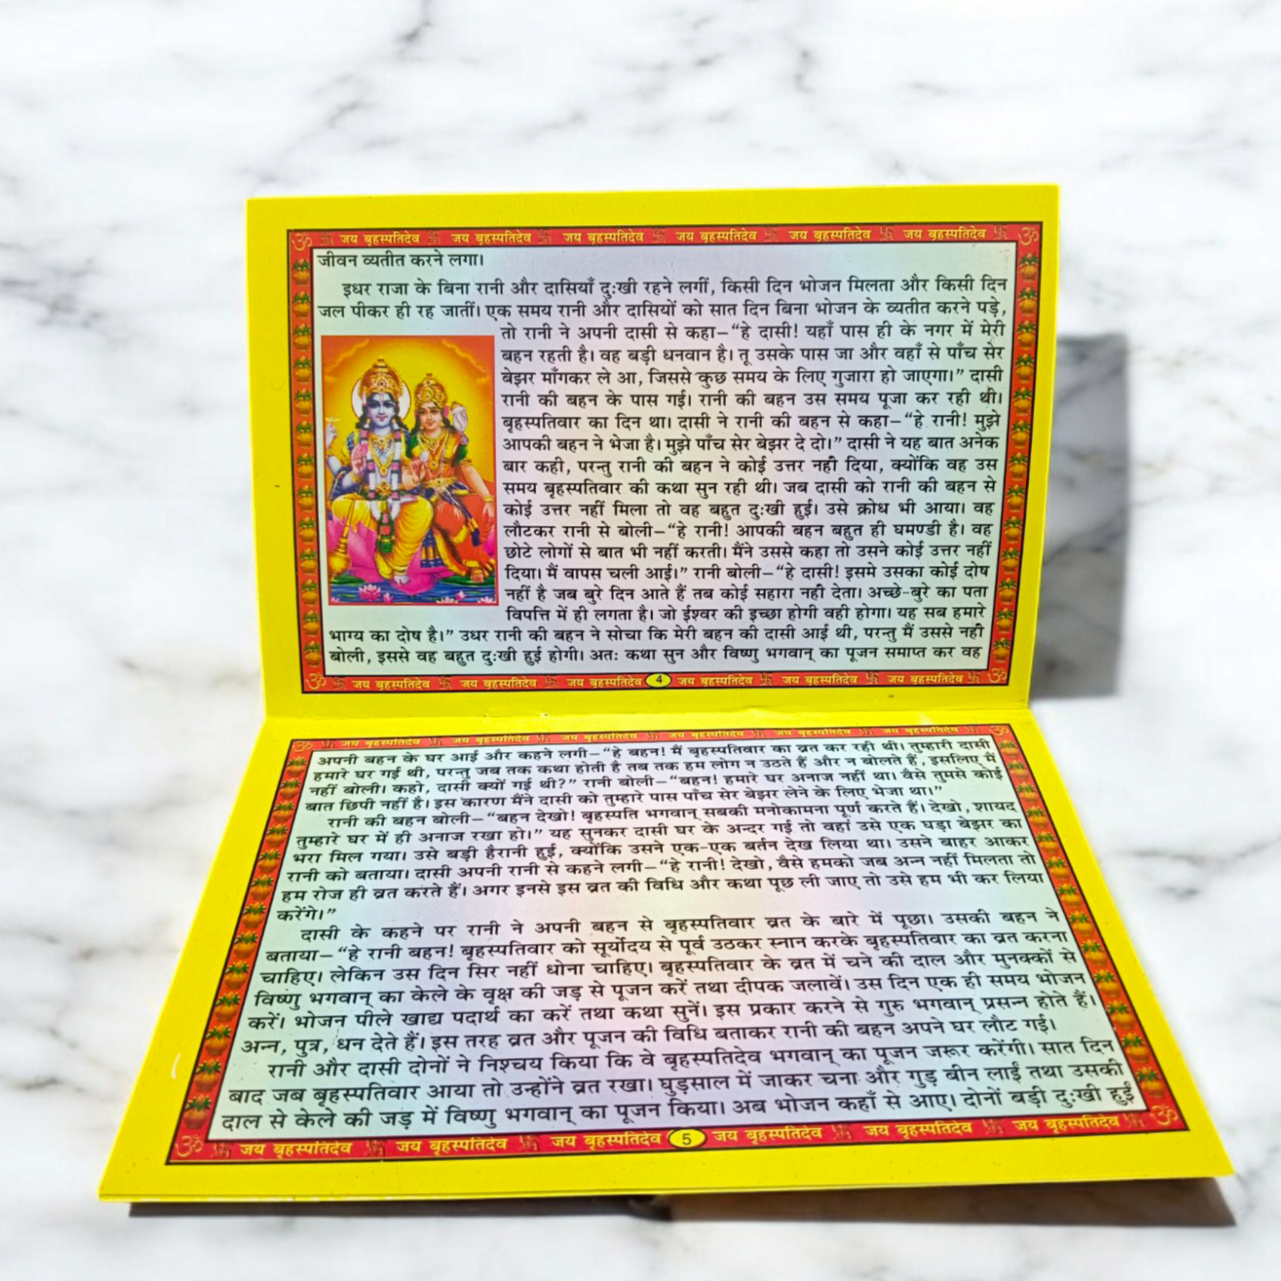 जय बृहस्पतिदेव जय बृहस्पतिदेव जय बृहस्पतिदेव जय बृहस्पतिदेव जय बृहस्पतिदेव जय बृहस्पतिदेव
जीवन व्यतीत करने लगा।
इधर राजा के बिना रानी और दासियाँ दुःखी रहने लगीं, किसी दिन भोजन मिलता और किसी दिन
जल पीकर ही रह जातीं। एक समय रानी और दासियों को सात दिन बिना भोजन के व्यतीत करने पड़े,
तो रानी ने अपनी दासी से कहा–“हे दासी! यहाँ पास ही के नगर में मेरी
बहन रहती है। वह बड़ी धनवान है। तू उसके पास जा और वहाँ से पाँच सेर
बेझर माँगकर ले आ, जिससे कुछ समय के लिए गुजारा हो जाएगा।” दासी
रानी की बहन के पास गई। रानी की बहन उस समय पूजा कर रही थी।
बृहस्पतिवार का दिन था। दासी ने रानी की बहन से कहा–“हे रानी! मुझे
आपकी बहन ने भेजा है। मुझे पाँच सेर बेझर दे दो।” दासी ने यह बात अनेक
बार कही, परन्तु रानी की बहन ने कोई उत्तर नही दिया, क्योंकि वह उस
समय बृहस्पतिवार की कथा सुन रही थी। जब दासी को रानी की बहन से
कोई उत्तर नहीं मिला तो वह बहुत दुःखी हुई। उसे क्रोध भी आया। वह
लौटकर रानी से बोली–“हे रानी! आपकी बहन बहुत ही घमण्डी है। वह
छोटे लोगों से बात भी नहीं करती। मैंने उससे कहा तो उसने कोई उत्तर नहीं
दिया। मैं वापस चली आई।” रानी बोली–“हे दासी! इसमे उसका कोई दोष
नहीं है जब बुरे दिन आते हैं तब कोई सहारा नही देता। अच्छे-बुरे का पता
विपत्ति में ही लगता है। जो ईश्वर की इच्छा होगी वही होगा। यह सब हमारे
भाग्य का दोष है।” उधर रानी की बहन ने सोचा कि मेरी बहन की दासी आई थी, परन्तु मैं उससे नही
बोली, इससे वह बहुत दुःखी हुई होगी। अतः कथा सुन और विष्णु भगवान् का पूजन समाप्त कर वह
जय बृहस्पतिदेव जय बृहस्पतिदेव जय बृहस्पतिदेव 4 जय बृहस्पतिदेव जय बृहस्पतिदेव जय बृहस्पतिदेव
जय बृहस्पतिदेव जय बृहस्पतिदेव जय बृहस्पतिदेव जय बृहस्पतिदेव जय बृहस्पतिदेव जय बृहस्पतिदेव
अपनी बहन के घर आई और कहने लगी–“हे बहन! मैं बृहस्पतिवार का व्रत कर रही थी। तुम्हारी दासी
हमारे घर गई थी, परन्तु जब तक कथा होती है तब तक हम लोग न उठते हैं और न बोलते हैं, इसलिए मैं
नहीं बोली। कहो, दासी क्यों गई थी?” रानी बोली–“बहन! हमारे घर अनाज नहीं था। वैसे तुमसे कोई
बात छिपी नहीं है। इस कारण मैंने दासी को तुम्हारे पास पाँच सेर बेझर लेने के लिए भेजा था।”
रानी की बहन बोली–“बहन देखो! बृहस्पति भगवान् सबकी मनोकामना पूर्ण करते हैं। देखो, शायद
तुम्हारे घर में ही अनाज रखा हो।” यह सुनकर दासी घर के अन्दर गई तो वहाँ उसे एक घड़ा बेझर का
भरा मिल गया। उसे बड़ी हैरानी हुई, क्योंकि उसने एक-एक बर्तन देख लिया था। उसने बाहर आकर
रानी को बताया। दासी अपनी रानी से कहने लगी–“हे रानी! देखो, वैसे हमको जब अन्न नहीं मिलता तो
हम रोज ही व्रत करते हैं। अगर इनसे इस व्रत की विधि और कथा पूछ ली जाए तो उसे हम भी कर लिया
करेंगे।”
दासी के कहने पर रानी ने अपनी बहन से बृहस्पतिवार व्रत के बारे में पूछा। उसकी बहन ने
बताया–“हे रानी बहन! बृहस्पतिवार को सूर्योदय से पूर्व उठकर स्नान करके बृहस्पतिवार का व्रत करना
चाहिए। लेकिन उस दिन सिर नहीं धोना चाहिए। बृहस्पतिवार के व्रत में चने की दाल और मुनक्कों से
विष्णु भगवान् का केले के वृक्ष की जड़ से पूजन करें तथा दीपक जलावें। उस दिन एक ही समय भोजन
करें। भोजन पीले खाद्य पदार्थ का करें तथा कथा सुनें। इस प्रकार करने से गुरु भगवान् प्रसन्न होते हैं।
अन्न, पुत्र, धन देते हैं। इस तरह व्रत और पूजन की विधि बताकर रानी की बहन अपने घर लौट गई।
रानी और दासी दोनों ने निश्चय किया कि वे बृहस्पतिदेव भगवान् का पूजन जरूर करेंगी। सात दिन
बाद जब बृहस्पतिवार आया तो उन्होंने व्रत रखा। घुड़साल में जाकर चना और गुड़ बीन लाईं तथा उसकी
दाल से केले की जड़ में विष्णु भगवान् का पूजन किया। अब भोजन कहाँ से आए। दोनों बड़ी दुःखी हुईं
जय बृहस्पतिदेव जय बृहस्पतिदेव जय बृहस्पतिदेव 5 जय बृहस्पतिदेव जय बृहस्पतिदेव जय बृहस्पतिदेव